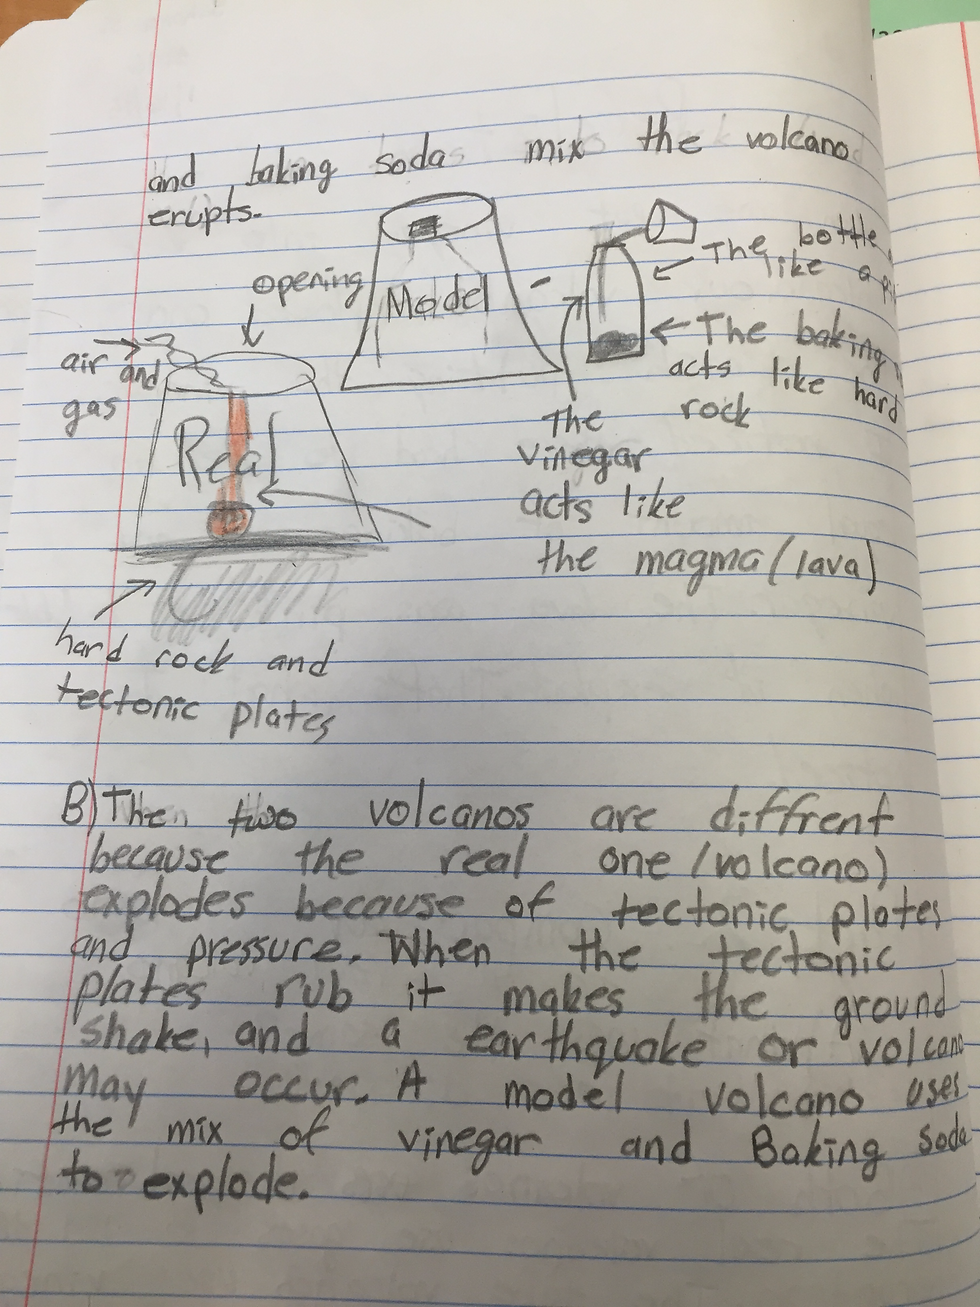 and baking soda mix the volcano
erupts.
opening
Model
The bottle
like a
air and
gas
The baking
acts like hard
rock
Real
The
vinegar
acts like
the magma (lava)
hard rock and
tectonic plates
B) The two volcanos are diffrent
because the real one (volcano)
explodes because of tectonic plates
and pressure. When the tectonic
plates rub it makes the ground
shake, and a earthquake or volcano
may occur. A model volcano uses
the mix of vinegar and Baking soda
to explode.